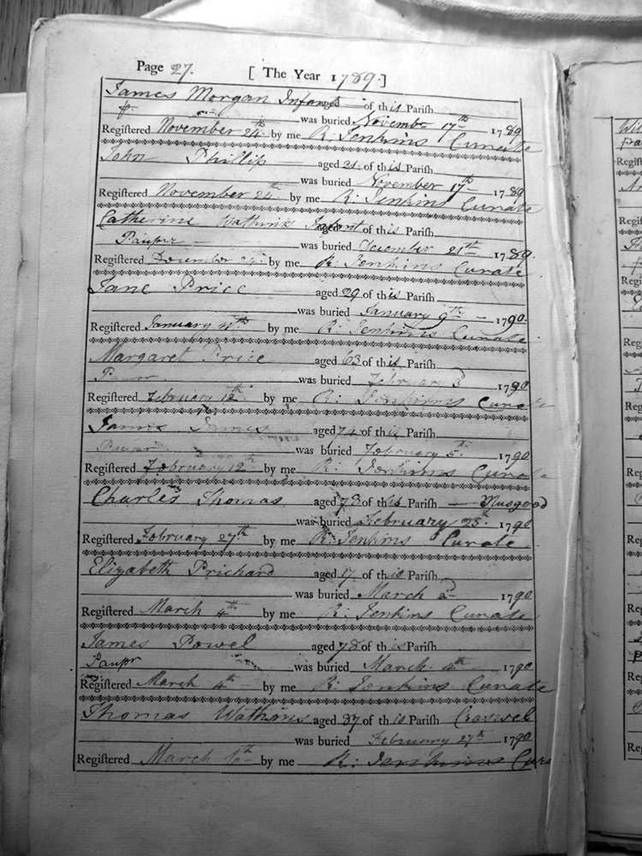 Page 27. [ The Year 1789. ]
James Morgan Infant of this Parish
was buried November 17th 1789
Registered November 24th by me R. Jenkins Curate
John Phillip aged 21 of this Parish
was buried November 17th 1789
Registered November 24th by me R. Jenkins Curate
Catherine Watkins Infant of this Parish
Pauper was buried December 21st 1789
Registered December by me R. Jenkins Curate
Jane Price aged 29 of this Parish
was buried January 9th 1790
Registered January by me R. Jenkins Curate
Margaret Price aged 63 of this Parish
was buried February 3 1790
Registered February 12th by me R. Jenkins Curate
James James aged 74 of this Parish
was buried February 5th 1790
Registered February 12th by me R. Jenkins Curate
Charles Thomas aged 78 of this Parish
was buried February 25th 1790
Registered February 27th by me R. Jenkins Curate
Elizabeth Prichard aged 17 of this Parish
was buried March 2 1790
Registered March 4th by me R. Jenkins Curate
James Powel aged 78 of this Parish
Paupr was buried March 4th 1790
Registered March 4th by me R. Jenkins Curate
Thomas Watkins aged 37 of this Parish Craswel
was buried February 27th 1790
Registered March by me R. Jenkins